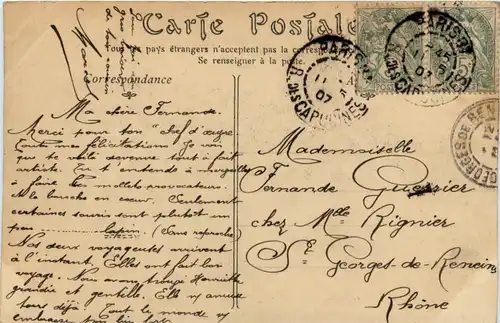 Carte Postale
Tous les pays étrangers n'acceptent pas la correspondance
Se renseigner à la poste.
Correspondance
Ma chère Fernande.
Merci pour ton "chef d'œuvre
toutes mes félicitations. Je vois
que te voilà devenue tout à fait
artiste. Tu t'entends à merveilles
à faire les mollets provocateurs.
et la bouche en cœur. Seulement
certaines souris sont plutôt un
peu lapin. (Sans reproche)
Nos deux voyageuses arrivent
à l'instant. Elles ont fait bon
voyage. Nous avons trouvé Henriette
grandie et gentille. Elle s'y amuse
tous déjà. Tout le monde s'y
embrasse
Mademoiselle
Fernande Guerrier
chez Mlle Rignier
St Georges-de-Reneins
Rhône
PARIS
R. DES CAPUCINES
07
PARIS
R. DES CAPUCINES
07
GEORGES DE REN